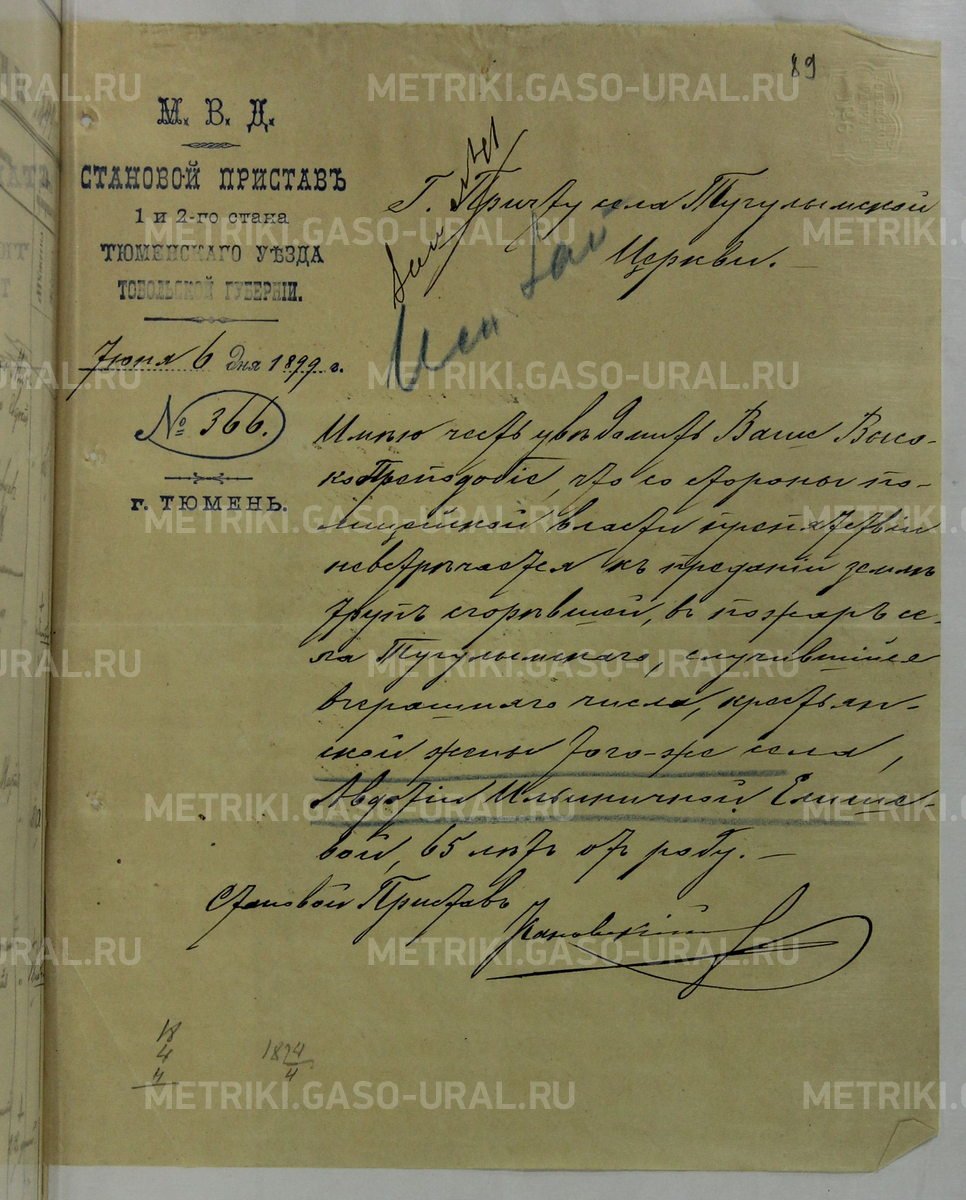 89
М. В. Д.
СТАНОВОЙ ПРИСТАВЪ
1 и 2-го стана
ТЮМЕНСКАГО УѢЗДА
ТОБОЛЬСКОЙ ГУБЕРНІИ.
Іюня 6 дня 1899 г.
№ 366.
г. ТЮМЕНЬ.
Г. Причту села Тугулымской
Церкви.
Имѣю честь увѣдомить Ваше Высо-
коПреподобіе, что со стороны по-
лицейской власти препятствій
невстрѣчается къ преданію землѣ
трупъ сгорѣвшей, въ пожарѣ се-
ла Тугулымскаго, случившійся
вчерашняго числа, крестьян-
ской жены того-же села,
Авдотіи Ильиничной Елисее-
вой, 65 лѣтъ отъ роду.
Становой Приставъ
18
4
4
1824
4
METRIKI.GASO-URAL.RU